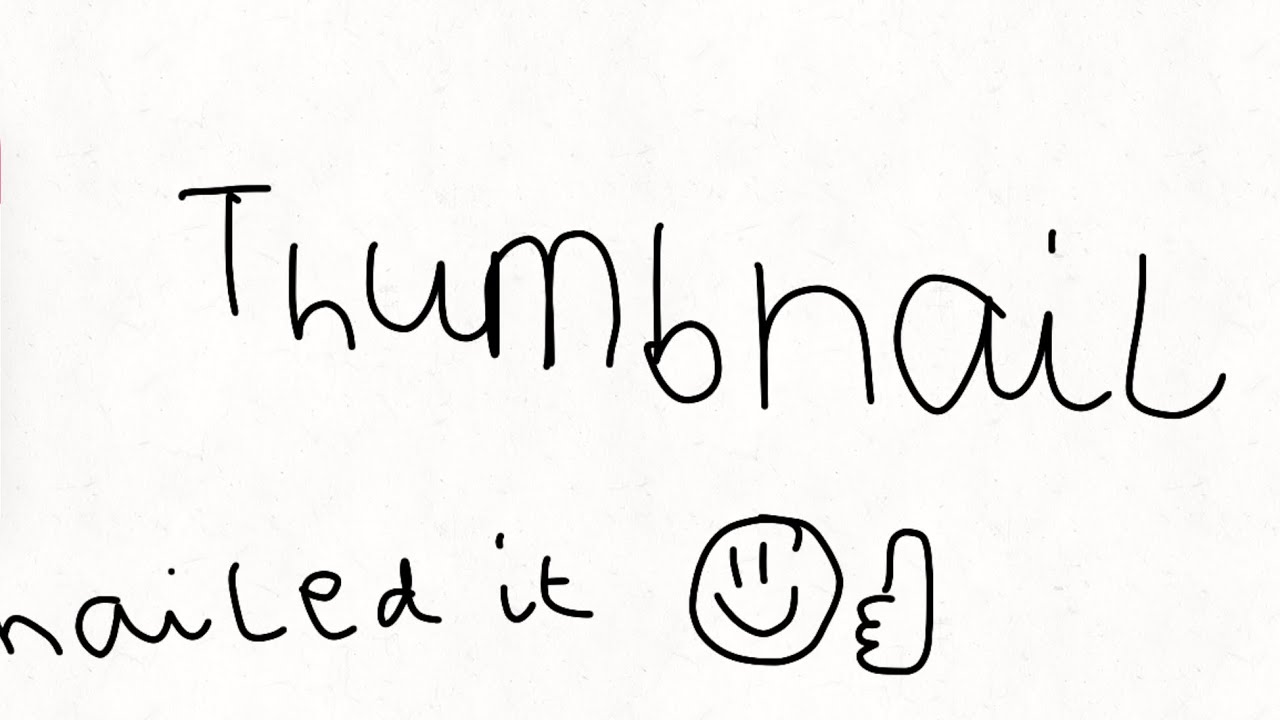 Thumbnail
nailed it